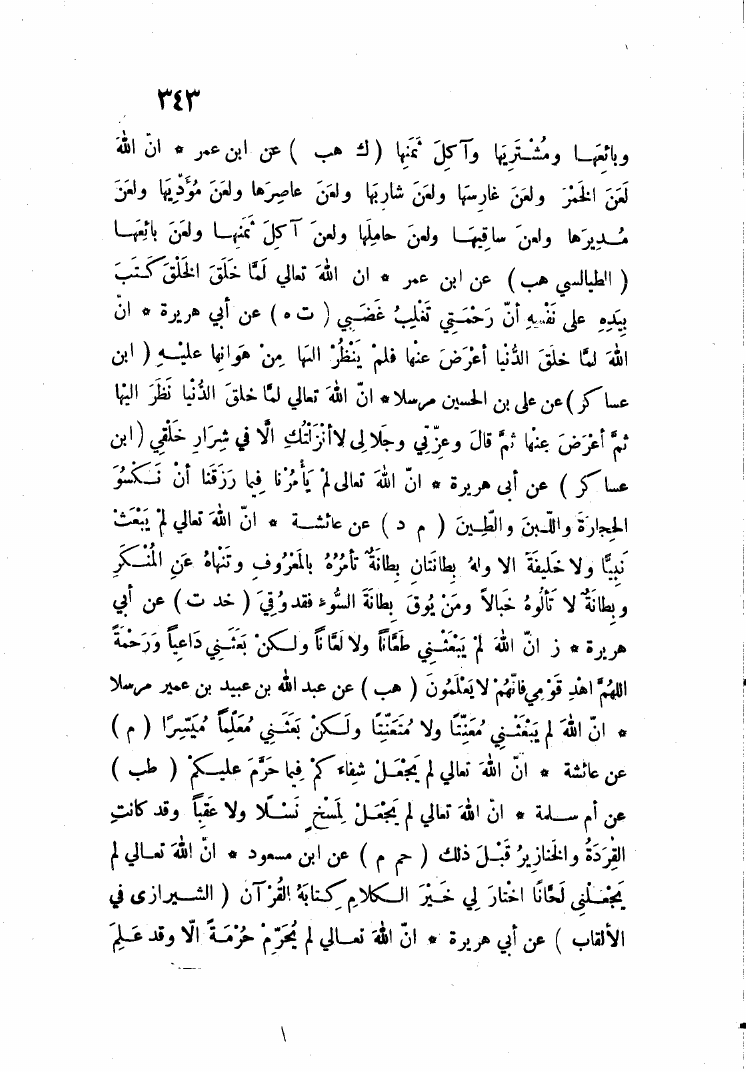 ٣٤٣
وبائِعَهَا ومُشْتَرِيَهَا وآكِلَ ثَمَنِهَا ( ك هب ) عن ابن عمر * انّ اللهَ
لَعَنَ الخَمْرَ ولَعَنَ غارِسَهَا ولَعَنَ شارِبَهَا ولَعَنَ عاصِرَها ولَعَنَ مُؤَدِّيَهَا ولَعَنَ
مُدِيرَها ولعن ساقِيَهَا ولعن حامِلَها ولعن آكِلَ ثَمَنِهَا ولَعَنَ بائِعَهَا
( الطيالسي هب ) عن ابن عمر * ان اللهَ تعالي لَمَّا خَلَقَ الخَلْقَ كَتَبَ
بِيَدِهِ على نَفْسِهِ أنّ رَحْمَتِي تَغْلِبُ غَضَبِي ( ت ه ) عن أبي هريرة * انّ
اللهَ لمَّا خلَقَ الدُّنْيا أعْرَضَ عنها فلمْ يَنْظُرْ اليهَا مِنْ هَوانِها عليْهِ ( ابن
عساكر ) عن على بن الحسين مرسلا * انّ اللهَ تعالي لمَّا خلقَ الدُّنْيا نَظَرَ اليْها
ثمَّ أعْرَضَ عنْها ثمَّ قالَ وعِزَّتِي وجَلالِى لاأنْزَلْتُكِ الَّا في شِرَارِ خَلْقِي ( ابن
عساكر ) عن أبى هريرة * انّ اللهَ تعالى لمْ يَأْمُرْنا فِيما رَزَقَنا أنْ نَكْسُوَ
الحِجارَةَ واللَّبِنَ والطِّينَ ( م د ) عن عائشة * انّ اللهَ تعالي لمْ يَبْعَثْ
نَبِيًّا ولا خَلِيفَةً الا ولهُ بِطانَتانِ بِطانَةٌ تأمُرُهُ بالمَعْرُوفِ وتَنْهاهُ عَنِ المُنْكَرِ
وبِطانَةٌ لا تَألُوهُ خَبالاً ومَنْ يُوقَ بِطانَةَ السُّوءِ فقدْ وُقِيَ ( خد ت ) عن أبي
هريرة * ز انّ اللهَ لمْ يَبْعَثْنِي طَعَّاناً ولا لَعَّاناً ولكنْ بَعَثَنِي دَاعِياً ورَحْمَةً
اللهُمَّ اهْدِ قَوْمِي فانّهُمْ لايَعْلَمُونَ ( هب ) عن عبد الله بن عبيد بن عمير مرسلا
* انّ اللهَ لم يَبْعَثْنِي مُعَنِّتًا ولا مُتَعَنِّتًا ولَكنْ بَعَثَنِي مُعَلِّماً مُيَسِّرًا ( م )
عن عائشة * انّ اللهَ تعالي لم يَجْعَلْ شِفَاءَكمْ فِيما حَرَّمَ عليكمْ ( طب )
عن أم سلمة * انّ اللهَ تعالي لم يَجْعَلْ لِمَسْخٍ نَسْلًا ولا عَقِباً وقد كانَتِ
القِرَدَةُ والخَنازِيرُ قَبْلَ ذلك ( حم م ) عن ابن مسعود * انّ اللهَ تعالي لم
يَجْعَلْنِي لَحَّانًا اخْتارَ لِي خَيْرَ الكلامِ كِتابَهُ القُرْآنَ ( الشيرازى في
الألقاب ) عن أبي هريرة * انّ اللهَ تعالي لم يُحَرِّمْ حُرْمَةً الّا وقد عَلِمَ